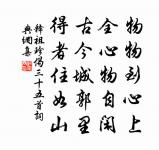 物物到心上
全心物自閑
古今城郭里
得者住如山
釋祖珍偈三十五首詞
典網集